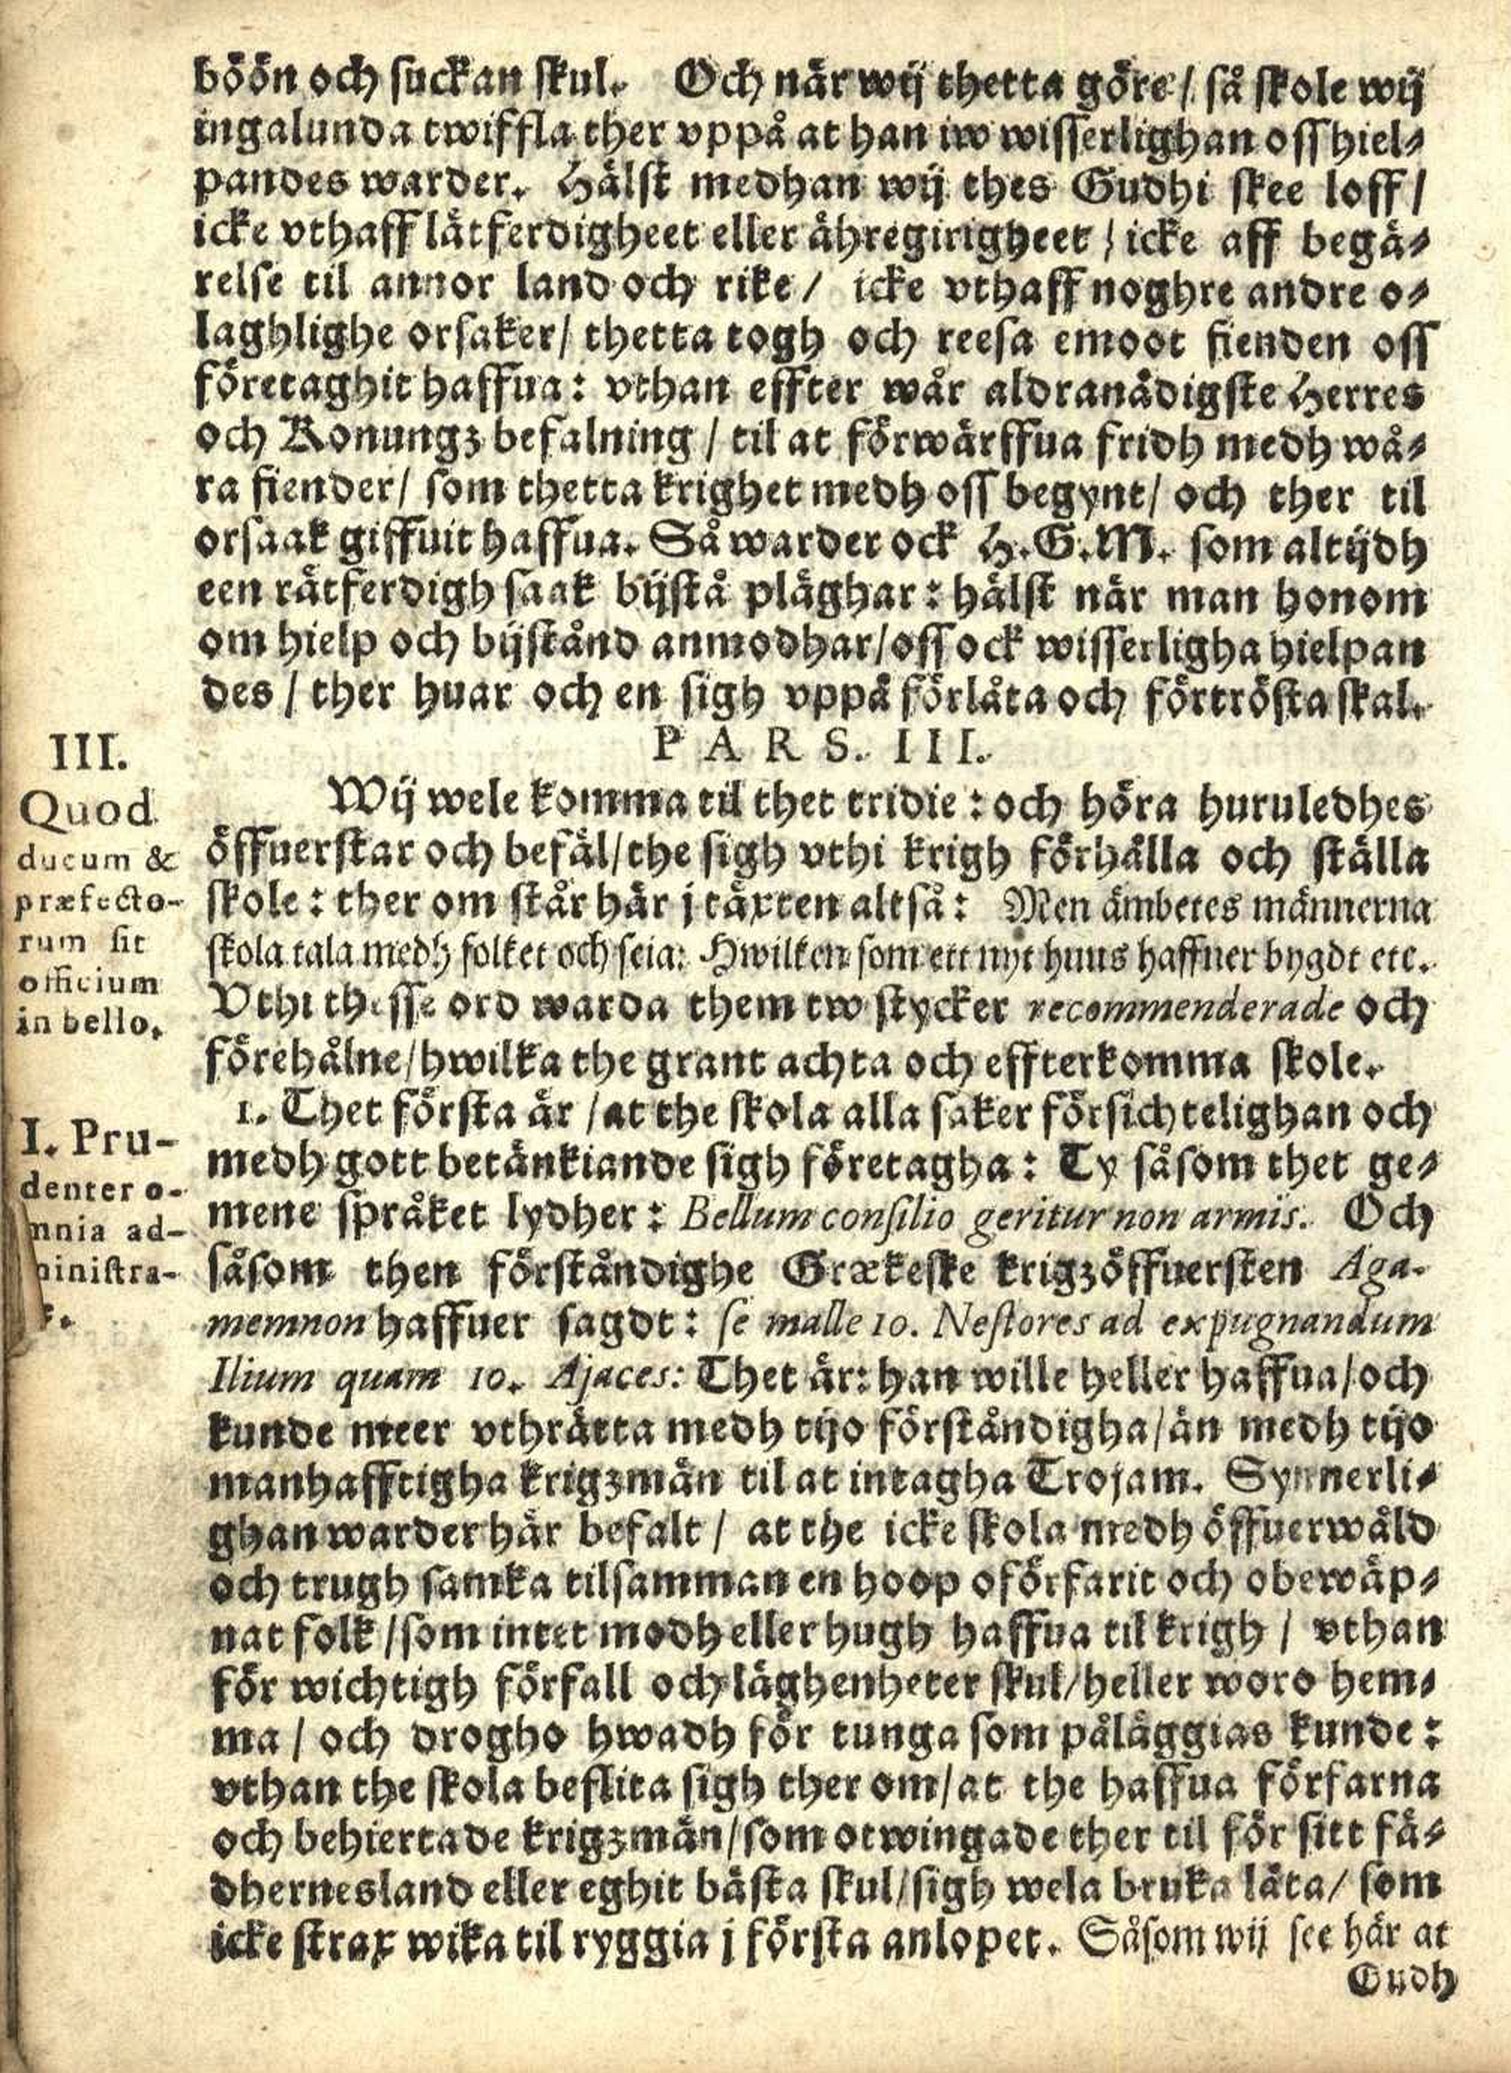 böön och suckan skul. Och när wij thetta göre / så skole wij
ingalunda twiffla ther vppå at han iw wisserlighan oss hiel-
pandes warder. Hälst medhan wij thes Gudhi skee loff /
icke vthaff lätferdigheet eller ähregirigheet / icke aff begä-
relse til annor land och rike / icke vthaff noghre andre o-
laghlighe orsaker / thetta togh och reesa emoot fienden oss
företaghit haffua: vthan effter wår aldranådigste Herres
och Konungz befalning / til at förwärffua fridh medh wå-
ra fiender / som thetta krighet medh oss begynt / och ther til
orsaak giffuit haffua. Så warder ock H.G.M. som altijdh
een rätferdigh saak bijstå pläghar: hälst när man honom
om hielp och bijstånd anmodhar / oss ock wisserligha hielpan
des / ther huar och en sigh vppå förlåta och förtrösta skal.
PARS. III.
III.
Quod
ducum &
præfecto-
rum sit
officium
in bello.
Wij wele komma til thet tridie: och höra huruledhes
öffuerstar och befäl / the sigh vthi krigh förhålla och ställa
skole: ther om står här j täxten altså: Men ämbetes männerna
skola tala medh folket och seia: Hwilken som ett nyt huus haffuer bygdt etc.
Vthi thesse ord warda them tw stycker recommenderade och
förehålne / hwilka the grant achta och effterkomma skole.
I. Pru-
denter o-
mnia ad-
ministra-
1. Thet första är / at the skola alla saker försichtelighan och
medh gott betänkiande sigh företagha: Ty såsom thet ge-
mene språket lydher: Bellum consilio geritur non armis. Och
såsom then förståndighe Grækeske krigzöffuersten Aga-
memnon haffuer sagdt: se malle 10. Nestores ad expugnandum
Ilium quam 10. Ajaces: Thet är: han wille heller haffua / och
kunde meer vthrätta medh tijo förståndigha / än medh tijo
manhafftigha krigzmän til at intagha Trojam. Synnerli-
ghan warder här befalt / at the icke skola medh öffuerwåld
och trugh samka tilsamman en hoop oförfarit och obewäp-
nat folk / som intet modh eller hugh haffua til krigh / vthan
för wichtigh förfall och läghenheter skul / heller woro hem-
ma / och drogho hwadh för tunga som påläggias kunde:
vthan the skola beflita sigh ther om / at the haffua förfarna
och behiertade krigzmän / som otwingade ther til för sitt fä-
dhernesland eller eghit bästa skul / sigh wela bruka låta / som
icke strax wika til ryggia j första anlopet. Såsom wij see här at
Gudh